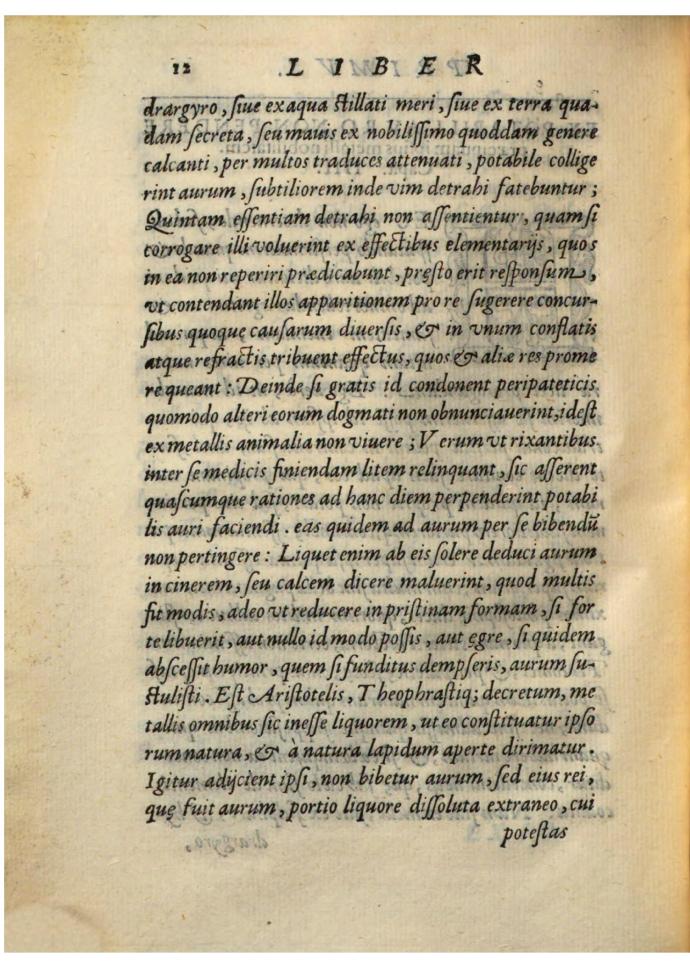 12 LIBER
drargyro, siue ex aqua stillati meri, siue ex terra qua-
dam secreta, seu mauis ex nobilissimo quoddam genere
calcanti, per multos traduces attenuati, potabile collige
rint aurum, subtiliorem inde vim detrahi fatebuntur;
Quintam essentiam detrahi non assentientur, quam si
corrogare illi voluerint ex effectibus elementarijs, quos
in ea non reperiri prædicabunt, pręsto erit responsum,
vt contendant illos apparitionem pro re sugerere concur-
sibus quoque causarum diuersis, & in vnum conflatis
atque refractis tribuent effectus, quos & aliæ res prome
re queant: Deinde si gratis id condonent peripateticis
quomodo alteri eorum dogmati non obnunciauerint, idest
ex metallis animalia non viuere; Verum vt rixantibus
inter se medicis finiendam litem relinquant, sic asserent
quascumque rationes ad hanc diem perpenderint potabi
lis auri faciendi. eas quidem ad aurum per se bibendũ
non pertingere: Liquet enim ab eis solere deduci aurum
in cinerem, seu calcem dicere maluerint, quod multis
fit modis, adeo vt reducere in pristinam formam, si for
te libuerit, aut nullo id modo possis, aut ęgre, si quidem
abscessit humor, quem si funditus dempseris, aurum su-
stulisti. Est Aristotelis, Theophrastiq; decretum, me
tallis omnibus sic inesse liquorem, ut eo constituatur ipso
rum natura, & à natura lapidum aperte dirimatur.
Igitur adijcient ipsi, non bibetur aurum, sed eius rei,
quę fuit aurum, portio liquore dissoluta extraneo, cui
potestas